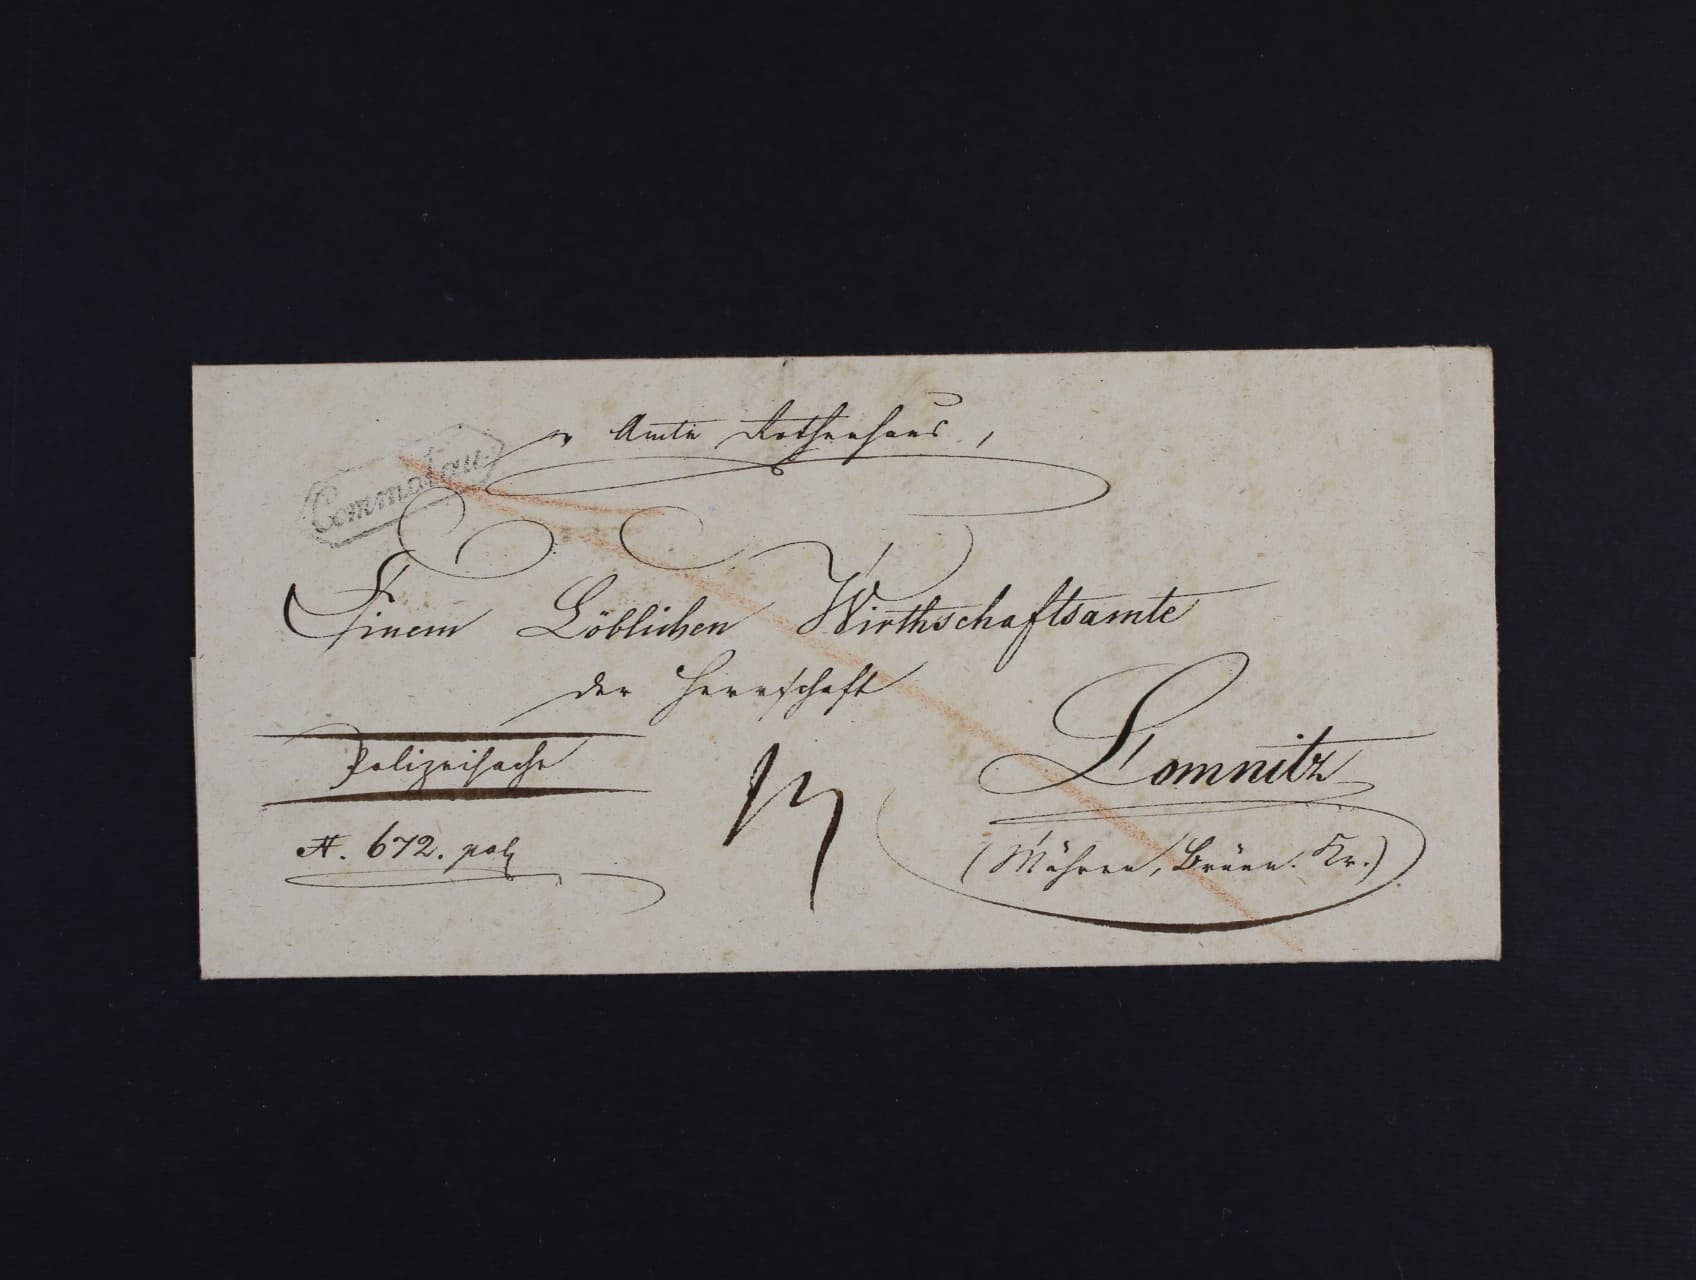 Commotau.
v Amte Rothenhaus,
Einem Löblichen Wirthschaftsamte
der Herrschaft
Polizeisache
Lomnitz
N. 672. pol
(Mähren, Brünn. Kr.)